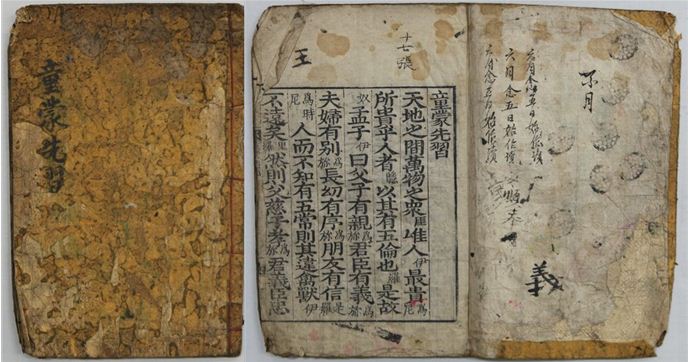 童蒙先習
不月
六月念五日始
六月念五日始作讀
六月念五日始作讀
義
十七張
王
童蒙先習
天地之間萬物之衆厓唯人伊最貴爲尼
所貴乎人者隱以其有五倫也羅是故
奴孟子伊曰父子有親爲旀君臣有義爲旀
夫婦有別爲旀長幼有序爲旀朋友有信是羅
爲時尼人而不知有五常則其違禽獸伊
不遠矣里羅然則父慈子孝爲旀君義臣忠